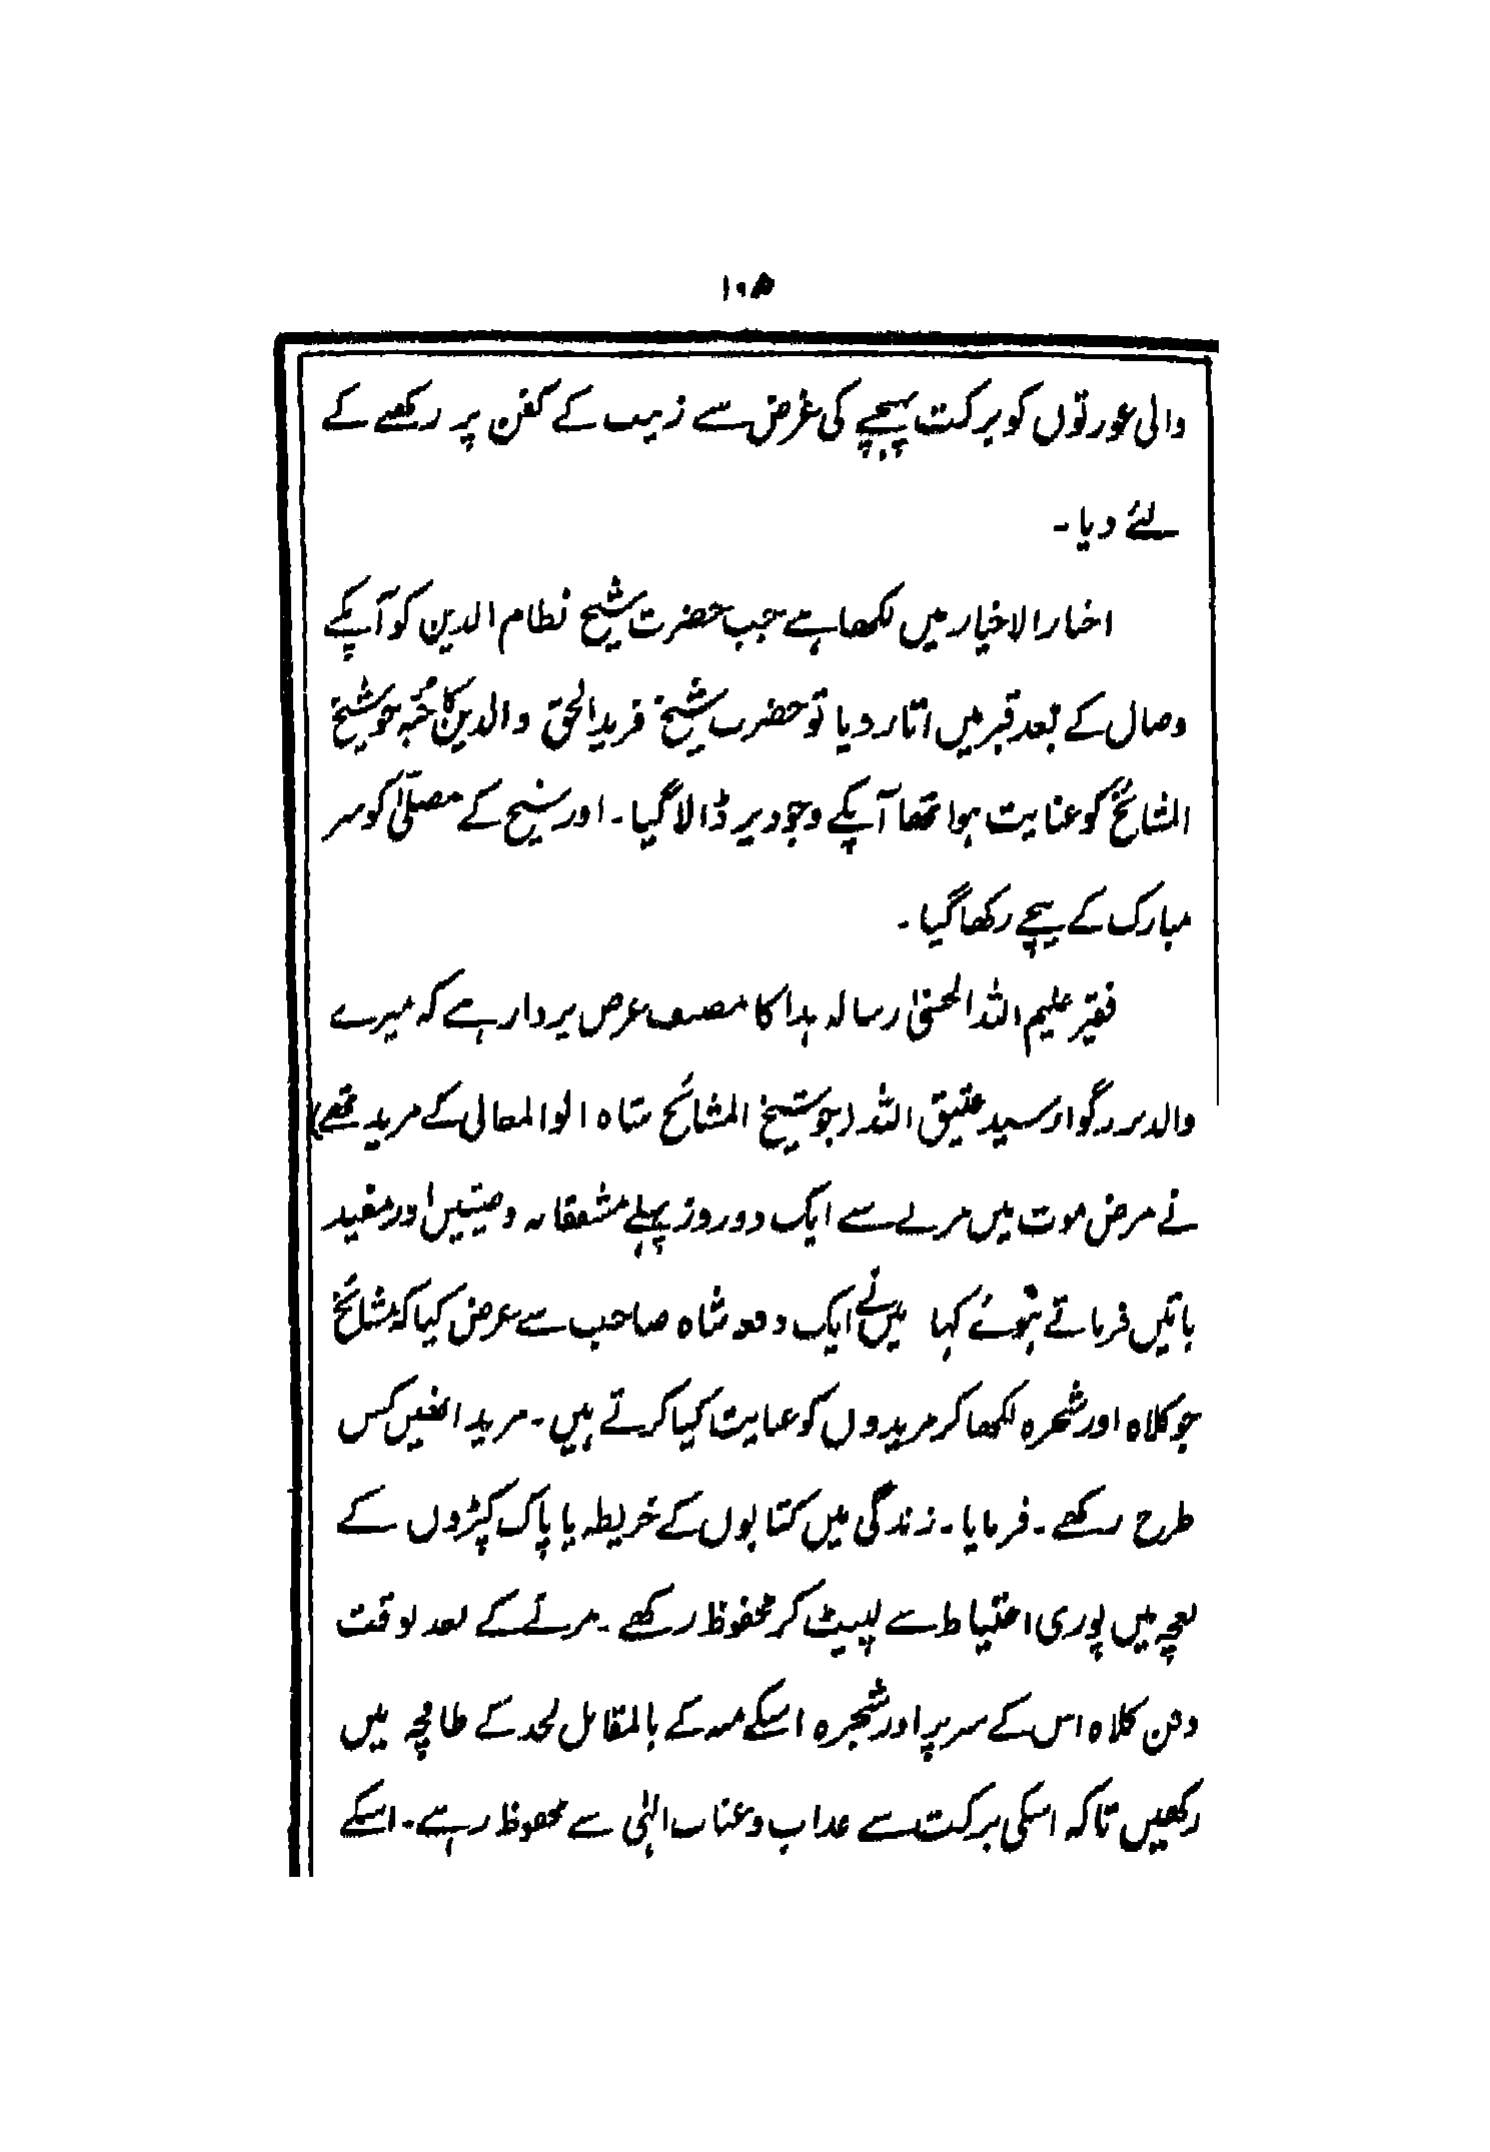 ۱۰۵
والی عورتوں کو برکت پہنچے کی غرض سے زینب کے کفن پر رکھے کے
لئے دیا۔
اخبار الاخیار میں لکھا ہے جب حضرت شیخ نظام الدین کو آپکے
وصال کے بعد قبر میں اتار دیا تو حضرت شیخ فرید الحق والدین کا جُبہ جو شیخ
المشائخ کو عنایت ہوا تھا آپکے وجود پر ڈالا گیا۔ اور شیخ کے مصلّیٰ کو سر
مبارک کے نیچے رکھا گیا۔
فقیر علیم اللہ الحسنی رسالہ ہذا کا مصنف عرض پردار ہے کہ میرے
والد بزرگوار سید عتیق اللہ (جو شیخ المشائخ شاہ ابوالمعالی کے مرید تھے)
نے مرض موت میں مرنے سے ایک دو روز پہلے مشفقانہ وصیتیں اور مفید
باتیں فرماتے ہوئے کہا میں نے ایک دفعہ شاہ صاحب سے عرض کیا کہ مشائخ
جو کلاہ اور شجرہ لکھا کر مریدوں کو عنایت کیا کرتے ہیں۔ مرید انھیں کس
طرح رکھے۔ فرمایا۔ زندگی میں کتابوں کے خریطہ یا پاک کپڑوں کے
بغچہ میں پوری احتیاط سے لپیٹ کر محفوظ رکھے۔ مرنے کے بعد بوقت
دفن کلاہ اس کے سر پر اور شجرہ اسکے منہ کے بالمقابل لحد کے طاقچہ میں
رکھیں تاکہ اسکی برکت سے عذاب و عتاب الہٰی سے محفوظ رہے۔ اسکے